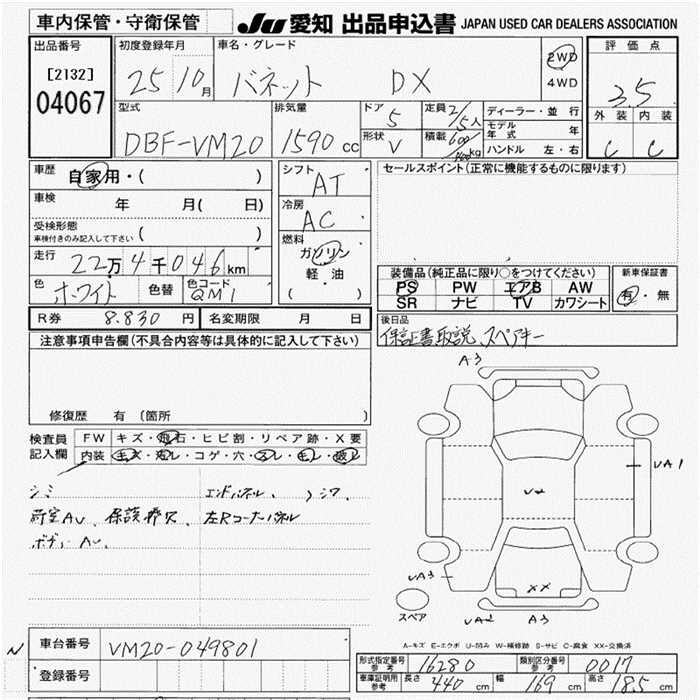 車内保管・守衛保管
JU 愛知 出品申込書 JAPAN USED CAR DEALERS ASSOCIATION
出品番号
[2132]
04067
初度登録年月
25 10月
車名・グレード
バネット DX
2WD
4WD
評価点
3.5
外装 内装
C C
型式
DBF-VM20
排気量
1590 cc
ドア
5
形状
V
定員
2/5人
積載
600/ kg
ディーラー・並行
モデル年式 年
ハンドル 左・右
車歴
自家用・( )
車検
年 月( 日)
受検形態
車検付きのみ記入して下さい ( )
走行
22万4千046km
色
ホワイト
色替
色コード
QM1
シフト
AT
冷房
AC
燃料
ガソリン
軽・油
( )
セールスポイント(正常に機能するものに限ります)
装備品(純正品に限り○をつけてください)
PS PW エアB AW
SR ナビ TV カワシート
新車保証書
有・無
R券 8.830 円
名変期限 月 日
後日品
保証書取説、スペアキー
注意事項申告欄(不具合内容等は具体的に記入して下さい)
修復歴 有 (箇所 )
検査員
記入欄
FW キズ・飛石・ヒビ割・リペア跡・X要
内装 キズ・汚レ・コゲ・穴・スレ・モレ・破レ
シミ エンドパネル、 シワ
荷室AU、保護棒欠 左Rコーナーパネル
ボディーAU
A3
VA1
V2
VA3
XX
スペア
VA2 A3
A-キズ E-エクボ U-凹み W-補修跡 S-サビ C-腐食 XX-交換済
N
車台番号 VM20-049801
登録番号
形式指定番号 参考 16280
類別区分番号 参考 0017
車庫証明用 参考 長さ 440 cm 幅 169 cm 高さ 185 cm